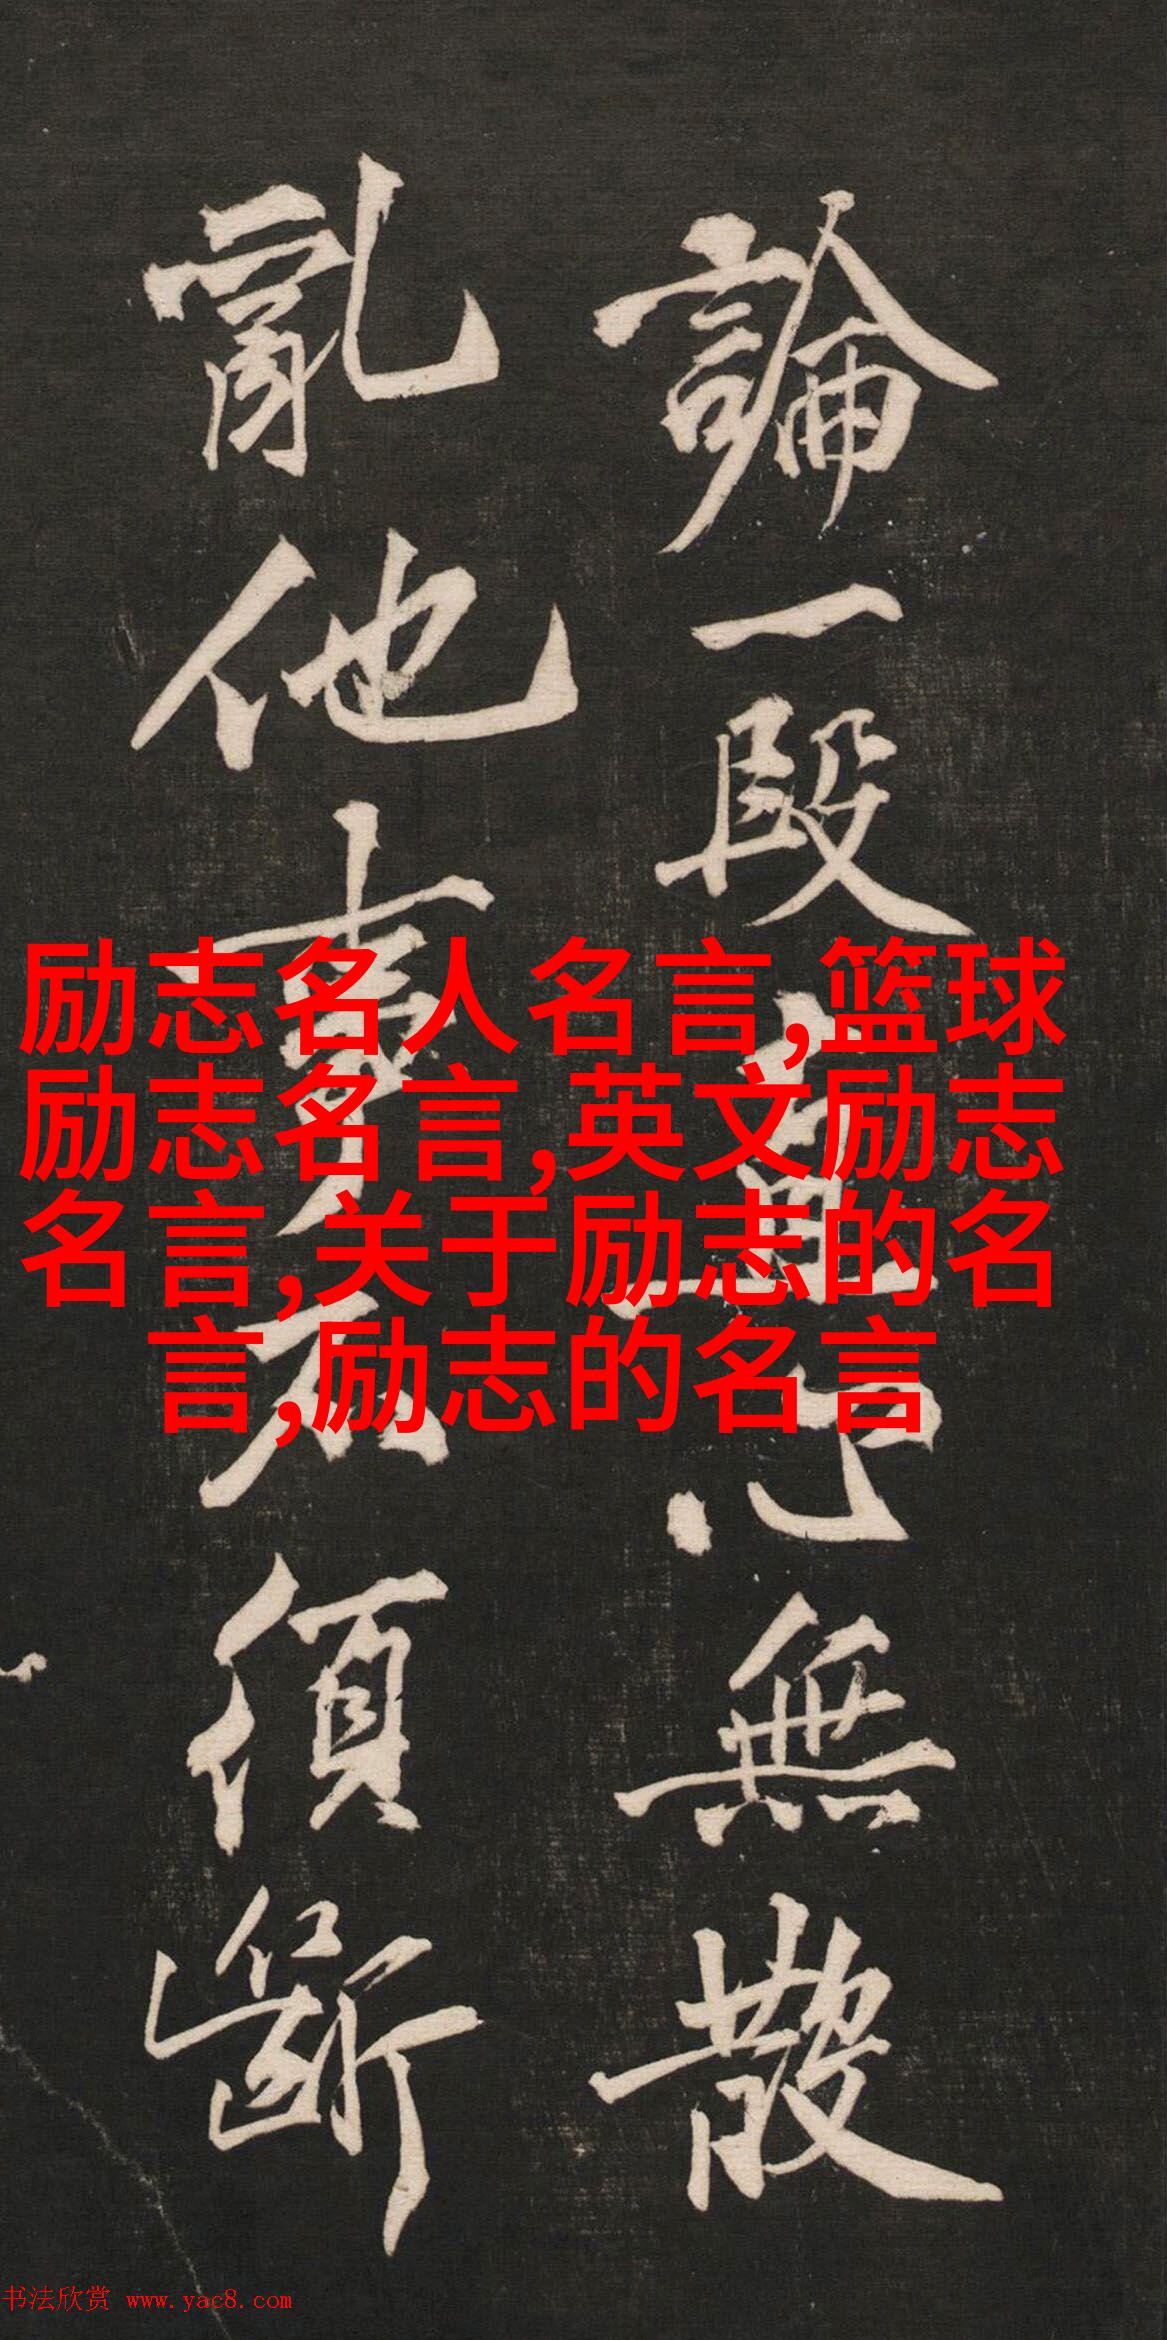 論一段直心無散
亂他事不須斷
励志名人名言,篮球
励志名言,英文励志
名言,关于励志的名
言,励志的名言
书法欣赏 www.yac8.com